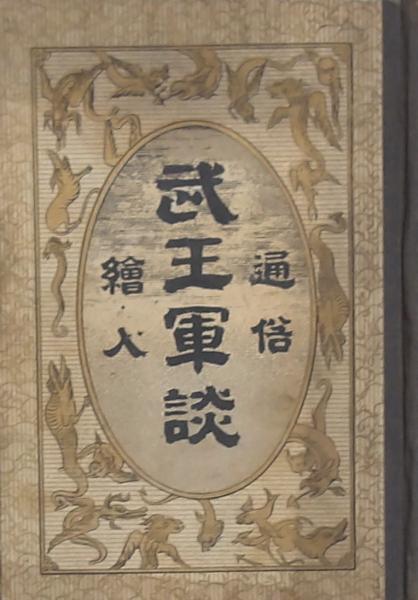 通俗
武王軍談
繪入